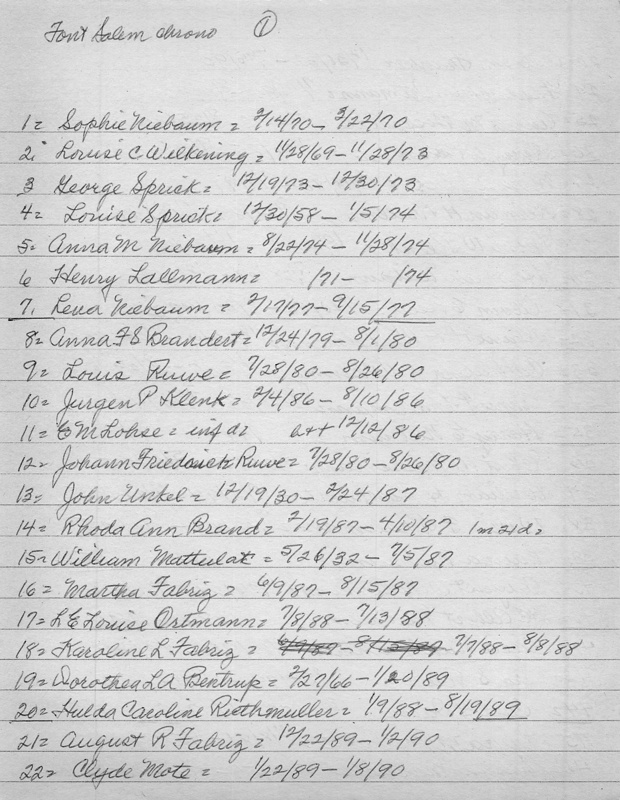 Font Salem chrono ①
1= Sophie Niebaum = 2/14/70 – 3/22/70
2. Louise C Wilkening = 11/28/69 – 11/28/73
3 George Sprick = 12/19/73 – 12/30/73
4= Louise Sprick = 12/30/58 – 1/5/74
5= Anna M Niebaum = 8/22/74 – 11/28/74
6 Henry Lallmann = /71 – /74
7. Lena Niebaum = 2/17/77 – 9/15/77
8= Anna F S Brandert = 12/24/79 – 8/1/80
9= Louis Ruwe = 7/28/80 – 8/26/80
10= Jurgen P Klenk = 2/4/86 – 8/10/86
11= E M Lohse = inf d= 12/12/86
12= Johann Friedrick Ruwe = 7/28/80 – 8/26/80
13= John Unkel = 12/19/30 – 2/24/87
14= Rhoda Ann Brand = 2/19/87 – 4/10/87 1m 21d=
15= William Mattulat = 5/26/32 – 7/5/87
16= Martha Fabriz = 6/9/87 – 8/15/87
17= L E Louise Ortmann = 7/8/88 – 7/13/88
18= Karoline L Fabriz = 7/7/88 – 8/8/88
19= Dorothea L A Bentrup = 2/27/66 – 1/20/89
20= Hulda Caroline Riethmuller = 1/9/88 – 8/19/89
21= August R Fabriz = 12/22/89 – 1/2/90
22= Clyde Mote = 1/22/89 – 1/8/90